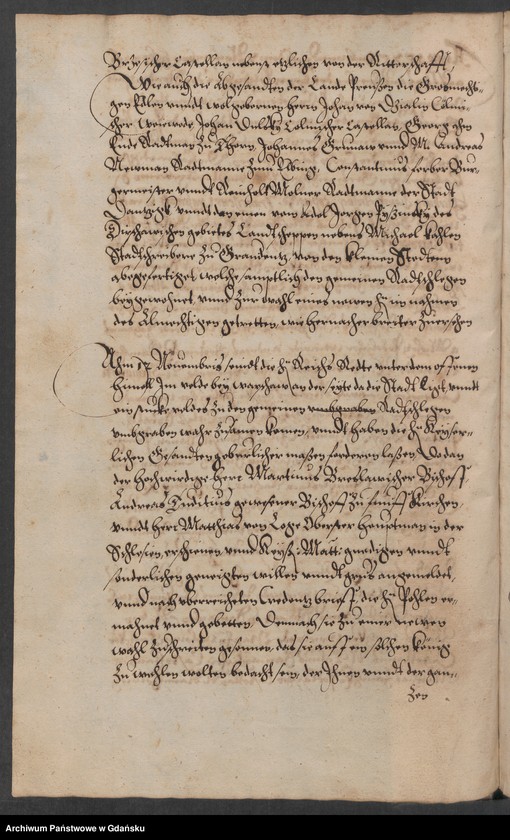 Brzesczer Castellan nebenst etzlichen von der Ritterschafft,
Wie auch die Abgesandten der Lande Preussen die Grosmechti-
gen Edlen unndt wolgebornen herrn Johan von Dzialin Colmi-
scher Weiewode Johan Dulsky Colmischer Castellan, Georg
Radtman zu Thorn, Johannes unnd M. Andreas
Newman Radtmanne zum Elbing, Constantinus Ferber Bur-
germeister unndt Reinholt Molner Radtmanne der Stadt
Dantzigk unndt den einen vom Adel Jorgen des
Dirschawischen gebietes Landtscheppen nebens Michael
Stadtschreibere zu Graudentz, von den kleinen Stedten
abegefertiget welche sämptlich den gemeinen Radtschlegen
beygewohnet, unnd zur wahl eines newen hern im nahmen
des Almechtigen getretten, wie hernacher breiter zuersehen
Ahm 12 Novembris seindt die h: Reichs Redte unter dem offenen
himell Im velde bey Warschaw an der seyte da die Stadt ligt, unndt
ein stucke veldes zu den gemeinen Radtschlegen
umbgraben wahr zusamen komen, unndt haben die h: Keyser-
lichen Gesandten geburlicher maßen fordern laßen, Da dan
der hochwirdige herr Martinus Breslawischer Bischoff
Andreas Duditius gewesener Bischoff zu funff Kirchen,
unndt herr Matthias von Loge Oberster hauptman in der
Schlesien, erschienen unnd Keyß: Matt: gnedigen unndt
sonderlichen geneigten willen unndt grus angemeldet,
unnd nach uberreicheten Credentz brieff, die h: Pohlen er-
mahnet unnd gebetten, Demnach sie zu einer newen
wahl zuschreiten gesonnen, das sie auff ein solchen König
zu wehlen wolten bedacht sein, der Ihnen unndt der gan-
zen
Archiwum Państwowe w Gdańsku